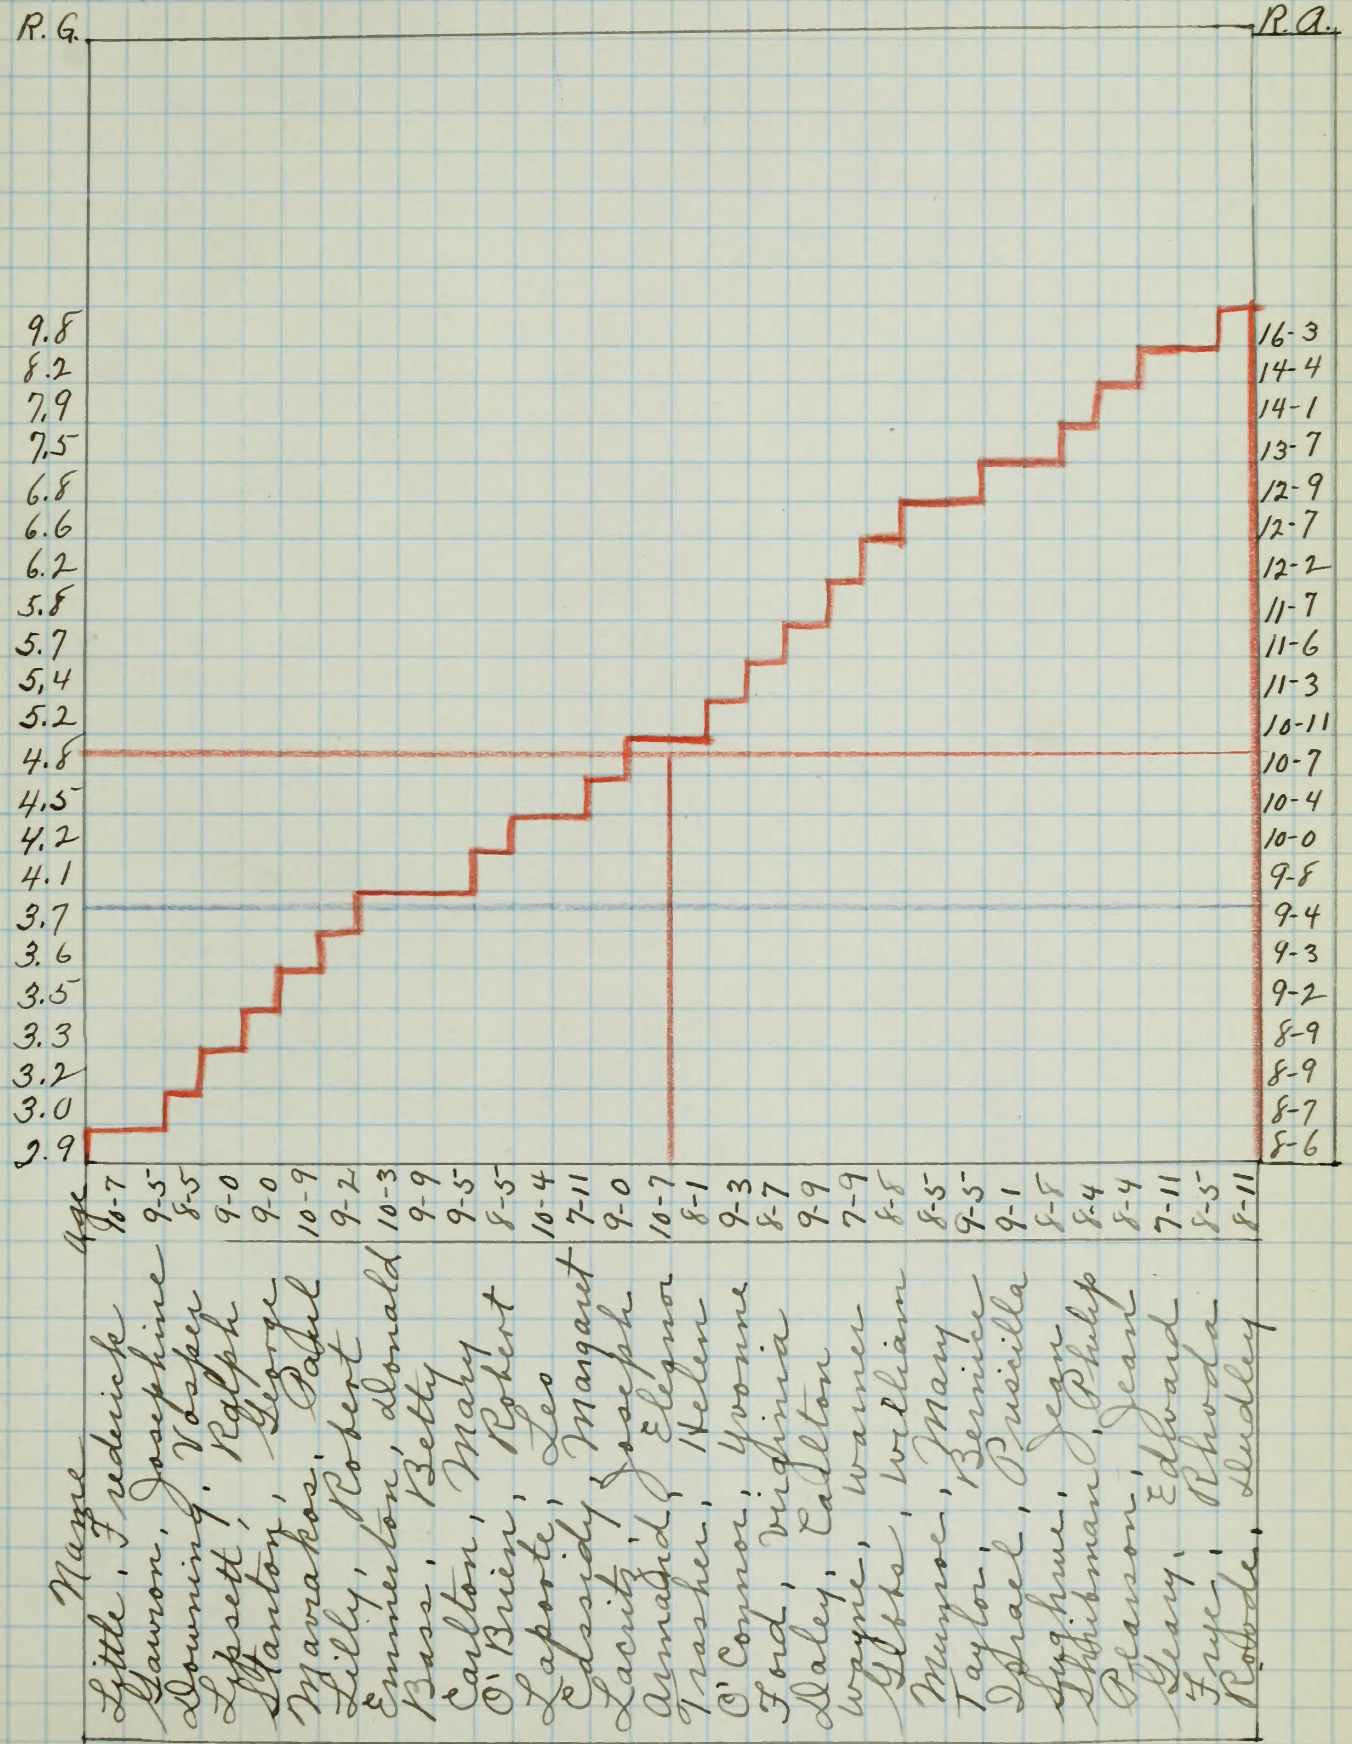 R.G.
R.A.
9.8 16-3
8.2 14-4
7.9 14-1
7.5 13-7
6.8 12-9
6.6 12-7
6.2 12-2
5.8 11-7
5.7 11-6
5.4 11-3
5.2 10-11
4.8 10-7
4.5 10-4
4.2 10-0
4.1 9-8
3.7 9-4
3.6 9-3
3.5 9-2
3.3 8-9
3.2 8-9
3.0 8-7
2.9 8-6
Name Age
Little, Frederick 10-7
Gawron, Josephine 9-5
Downing, Vosper 8-5
Lipsett, Ralph 9-0
Stanton, George 9-0
Mavrakos, Paul 10-9
Lilly, Robert 9-2
Emmerton, Donald 10-3
Bass, Betty 9-9
Carlton, Mary 9-5
O'Brien, Robert 8-5
Laporte, Leo 10-4
Cassidy, Margaret 7-11
Lacritz, Joseph 9-0
Armand, Eleanor 10-7
Trasher, Helen 8-1
O'Connor, Yvonne 9-3
Ford, Virginia 8-7
Daley, Carlton 9-9
Wayne, Warner 7-9
Gibbs, William 8-8
Munroe, Mary 8-5
Taylor, Bernice 9-5
Israel, Priscilla 9-1
Jean 8-8
Shribman, Philip 8-4
Pearson, Jean 8-4
Geary, Edward 7-11
Frye, Rhoda 8-5
Dudley 8-11